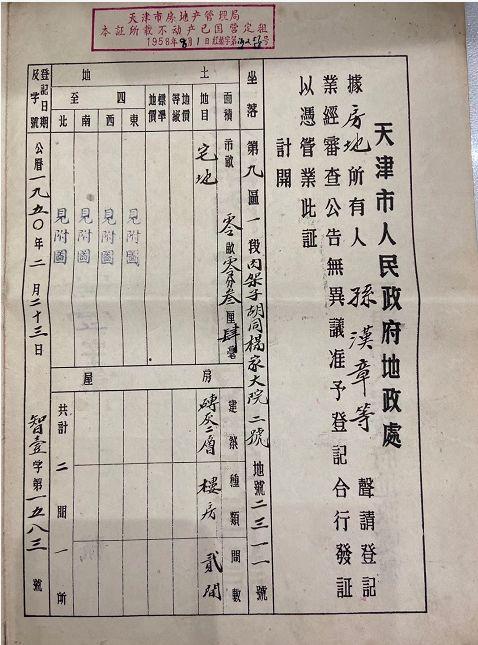 天津市房地产管理局
本証所載不动产已国营定租
1958年8月1日紅維字第号
天津市人民政府地政處
據房地所有人孫漢章等聲請登記
業經審查公告無異議准予登記合行發証
以憑管業此証
計開
坐落 第九區一段肉架子胡同楊家大院二號 地號二三一一號
土地
面積 市畝 零畝零分叁厘肆毫
地目 宅地
地價等級
標準地價
四至
東 見附圖
西 見附圖
南 見附圖
北 見附圖
房屋
建築種類間數
磚灰二層 樓房 貳間
共計二間一所
登記日期及字號 公曆一九五〇年二月二十三日 智壹字第一五八三號